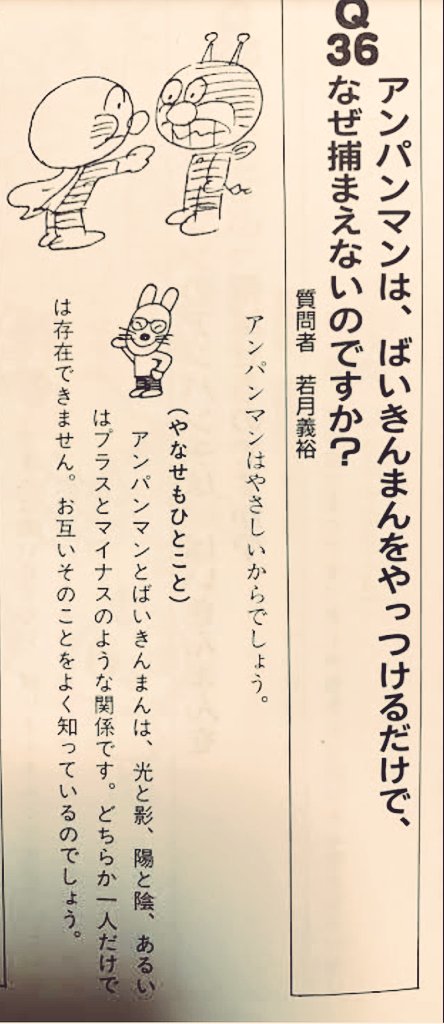 Q
36
アンパンマンは、ばいきんまんをやっつけるだけで、
なぜ捕まえないのですか?
質問者 若月義裕
アンパンマンはやさしいからでしょう。
(やなせもひとこと)
アンパンマンとばいきんまんは、光と影、陽と陰、あるい
はプラスとマイナスのような関係です。どちらか一人だけで
は存在できません。お互いそのことをよく知っているのでしょう。